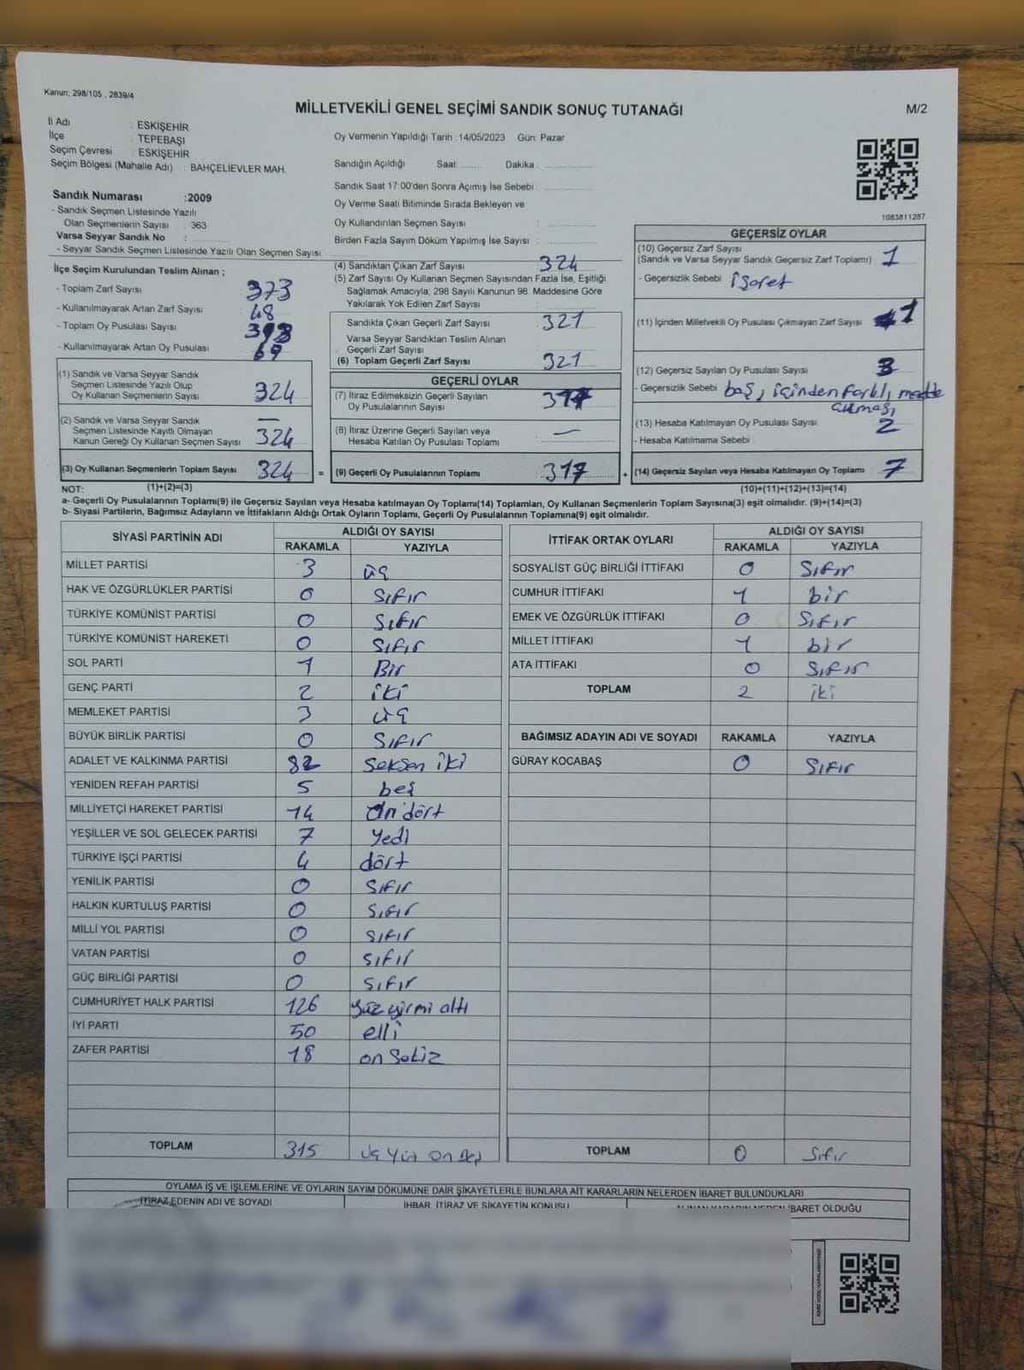 Kanun: 298/105 , 2839/4
MİLLETVEKİLİ GENEL SEÇİMİ SANDIK SONUÇ TUTANAĞI
M/2
İl Adı : ESKİŞEHİR
İlçe : TEPEBAŞI
Seçim Çevresi : ESKİŞEHİR
Seçim Bölgesi (Mahalle Adı) : BAHÇELİEVLER MAH.
Sandık Numarası :2009
- Sandık Seçmen Listesinde Yazılı
Olan Seçmenlerin Sayısı : 363
Varsa Seyyar Sandık No :
- Seyyar Sandık Seçmen Listesinde Yazılı Olan Seçmen Sayısı:
Oy Vermenin Yapıldığı Tarih :14/05/2023 Gün: Pazar
Sandığın Açıldığı Saat: Dakika :
Sandık Saat 17:00'den Sonra Açımış İse Sebebi :
Oy Verme Saati Bitiminde Sırada Bekleyen ve
Oy Kullandırılan Seçmen Sayısı :
Birden Fazla Sayım Döküm Yapılmış İse Sayısı :
1083811287
İlçe Seçim Kurulundan Teslim Alınan ;
- Toplam Zarf Sayısı 373
- Kullanılmayarak Artan Zarf Sayısı 48
- Toplam Oy Pusulası Sayısı
- Kullanılmayarak Artan Oy Pusulası 69
(1) Sandık ve Varsa Seyyar Sandık
Seçmen Listesinde Yazılı Olup
Oy Kullanan Seçmenlerin Sayısı 324
(2) Sandık ve Varsa Seyyar Sandık —
Seçmen Listesinde Kayıtlı Olmayan
Kanun Gereği Oy Kullanan Seçmen Sayısı 324
(3) Oy Kullanan Seçmenlerin Toplam Sayısı 324 =
(4) Sandıktan Çıkan Zarf Sayısı 324
(5) Zarf Sayısı Oy Kullanan Seçmen Sayısından Fazla İse, Eşitliği
Sağlamak Amacıyla; 298 Sayılı Kanunun 98. Maddesine Göre
Yakılarak Yok Edilen Zarf Sayısı :
Sandıkta Çıkan Geçerli Zarf Sayısı 321
Varsa Seyyar Sandıktan Teslim Alınan
Geçerli Zarf Sayısı
(6) Toplam Geçerli Zarf Sayısı 321
GEÇERLİ OYLAR
(7) İtiraz Edilmeksizin Geçerli Sayılan
Oy Pusulalarının Sayısı 317
(8) İtiraz Üzerine Geçerli Sayılan veya
Hesaba Katılan Oy Pusulası Toplamı —
(9) Geçerli Oy Pusulalarının Toplamı 317 +
GEÇERSİZ OYLAR
(10) Geçersiz Zarf Sayısı
(Sandık ve Varsa Seyyar Sandık Geçersiz Zarf Toplamı) 1
- Geçersizlik Sebebi işaret
(11) İçinden Milletvekili Oy Pusulası Çıkmayan Zarf Sayısı 1
(12) Geçersiz Sayılan Oy Pusulası Sayısı 3
- Geçersizlik Sebebi boş, içinden farklı madde
çıkması
(13) Hesaba Katılmayan Oy Pusulası Sayısı 2
- Hesaba Katılmama Sebebi
(14) Geçersiz Sayılan veya Hesaba Katılmayan Oy Toplamı 7
NOT: (1)+(2)=(3)
(10)+(11)+(12)+(13)=(14)
a- Geçerli Oy Pusulalarının Toplamı(9) ile Geçersiz Sayılan veya Hesaba katılmayan Oy Toplamı(14) Toplamları, Oy Kullanan Seçmenlerin Toplam Sayısına(3) eşit olmalıdır. (9)+(14)=(3)
b- Siyasi Partilerin, Bağımsız Adayların ve İttifakların Aldığı Ortak Oyların Toplamı, Geçerli Oy Pusulalarının Toplamına(9) eşit olmalıdır.
SİYASİ PARTİNİN ADI ALDIĞI OY SAYISI
RAKAMLA YAZIYLA
MİLLET PARTİSİ 3 üç
HAK VE ÖZGÜRLÜKLER PARTİSİ 0 Sıfır
TÜRKİYE KOMÜNİST PARTİSİ 0 Sıfır
TÜRKİYE KOMÜNİST HAREKETİ 0 Sıfır
SOL PARTİ 1 Bir
GENÇ PARTİ 2 iki
MEMLEKET PARTİSİ 3 üç
BÜYÜK BİRLİK PARTİSİ 0 Sıfır
ADALET VE KALKINMA PARTİSİ 82 Seksen iki
YENİDEN REFAH PARTİSİ 5 beş
MİLLİYETÇİ HAREKET PARTİSİ 14 On dört
YEŞİLLER VE SOL GELECEK PARTİSİ 7 Yedi
TÜRKİYE İŞÇİ PARTİSİ 4 dört
YENİLİK PARTİSİ 0 Sıfır
HALKIN KURTULUŞ PARTİSİ 0 Sıfır
MİLLİ YOL PARTİSİ 0 Sıfır
VATAN PARTİSİ 0 Sıfır
GÜÇ BİRLİĞİ PARTİSİ 0 Sıfır
CUMHURİYET HALK PARTİSİ 126 yüz yirmi altı
İYİ PARTİ 50 elli
ZAFER PARTİSİ 18 on Sekiz
TOPLAM 315 üç Yüz On beş
İTTİFAK ORTAK OYLARI ALDIĞI OY SAYISI
RAKAMLA YAZIYLA
SOSYALİST GÜÇ BİRLİĞİ İTTİFAKI 0 Sıfır
CUMHUR İTTİFAKI 1 bir
EMEK VE ÖZGÜRLÜK İTTİFAKI 0 Sıfır
MİLLET İTTİFAKI 1 bir
ATA İTTİFAKI 0 Sıfır
TOPLAM 2 iki
BAĞIMSIZ ADAYIN ADI VE SOYADI RAKAMLA YAZIYLA
GÜRAY KOCABAŞ 0 Sıfır
TOPLAM 0 Sıfır
OYLAMA İŞ VE İŞLEMLERİNE VE OYLARIN SAYIM DÖKÜMÜNE DAİR ŞİKAYETLERLE BUNLARA AİT KARARLARIN NELERDEN İBARET BULUNDUKLARI
İTİRAZ EDENİN ADI VE SOYADI İHBAR, İTİRAZ VE ŞİKAYETİN KONUSU İBARET OLDUĞU